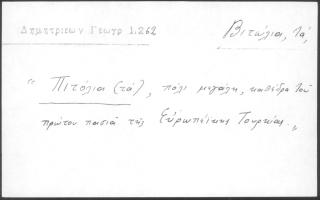 Δημητριεων Γεωγρ 1.262
Βιτώλια, Τά,
" Πιτόλια (τά), πόλι μεγάλη, καθέδρα τοῦ
πρώτου πασιᾶ τῆς Εὐρωπαϊκης Τουρκίας."